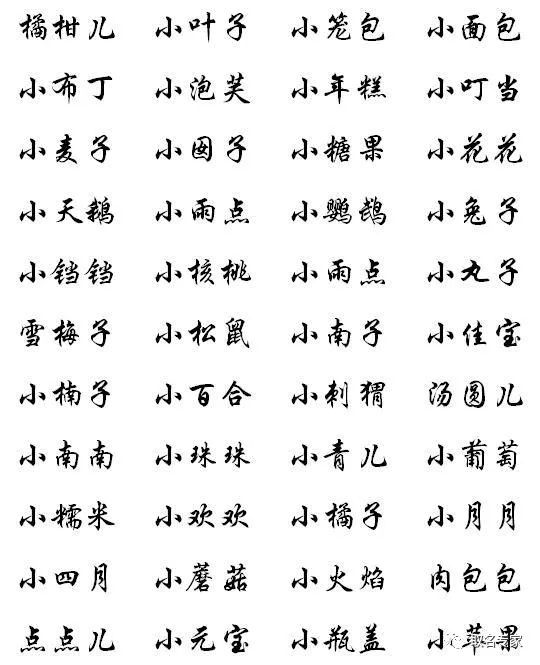 橘柑儿 小叶子 小笼包 小面包
小布丁 小泡芙 小年糕 小叮当
小麦子 小囡子 小糖果 小花花
小天鹅 小雨点 小鹦鹉 小兔子
小铛铛 小核桃 小雨点 小丸子
雪梅子 小松鼠 小南子 小佳宝
小楠子 小百合 小刺猬 汤圆儿
小南南 小珠珠 小青儿 小葡萄
小糯米 小欢欢 小橘子 小月月
小四月 小蘑菇 小火焰 肉包包
点点儿 小元宝 小瓶盖 小苹果
取名专家